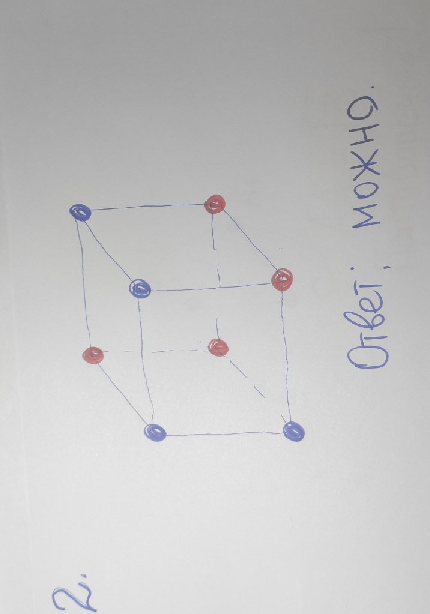 2.
Ответ: можно.